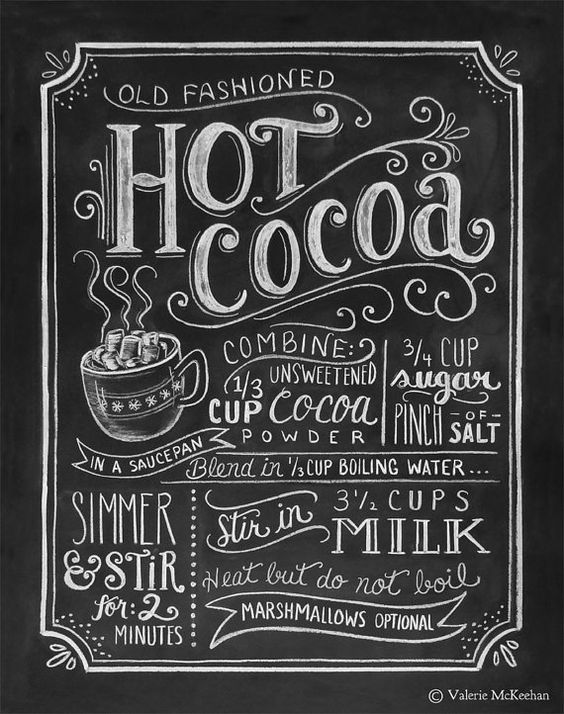 OLD FASHIONED
HOT
COCOA
COMBINE:
1/3 UNSWEETENED
CUP Cocoa
POWDER
3/4 CUP
sugar
PINCH -OF- SALT
IN A SAUCEPAN
Blend in 1/3 CUP BOILING WATER...
SIMMER
& STIR
for: 2
MINUTES
Stir in 3 1/2 CUPS
MILK
Heat but do not boil
MARSHMALLOWS OPTIONAL
© Valerie McKeehan